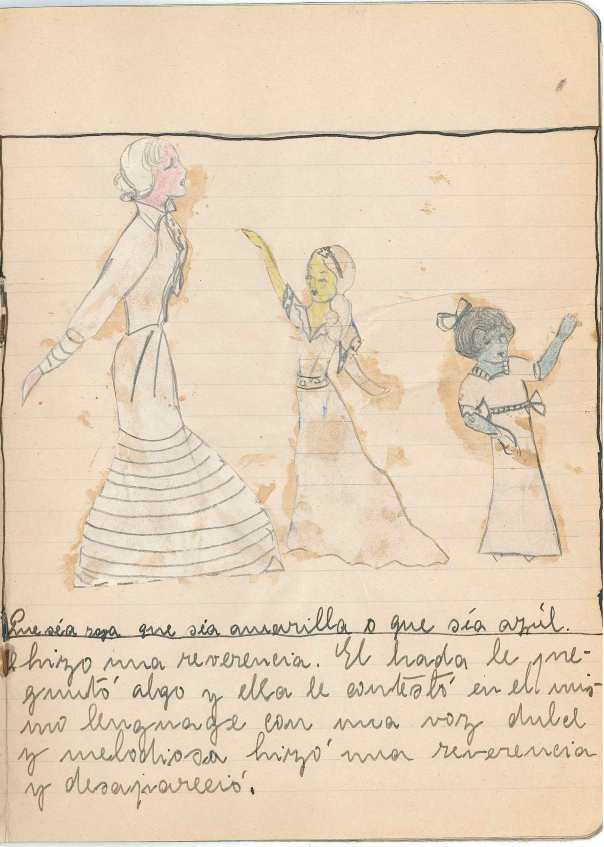 Que séa roja que séa amarilla o que séa azúl.
e hizo una reverencia. El hada le pre-
guntó algo y ella le contéstó en el mis-
mo lenguage con una voz dulcé
y melodiosa hizó una reverencia
y desapareció.